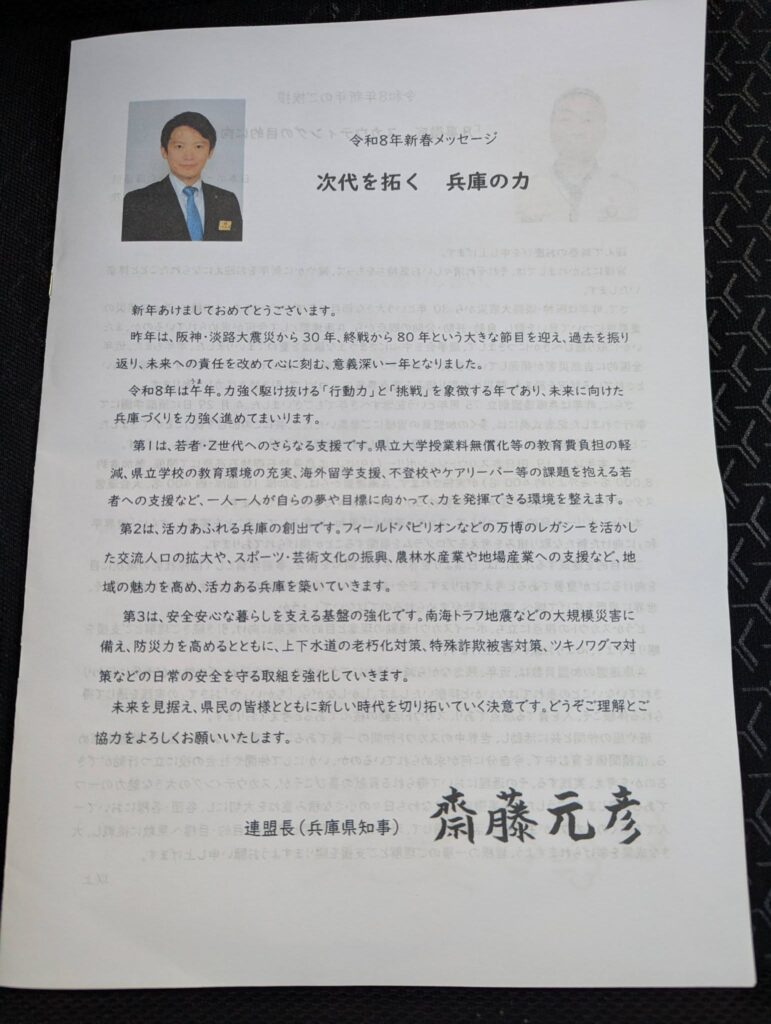 令和8年新春メッセージ
次代を拓く　兵庫の力
新年あけましておめでとうございます。
昨年は、阪神・淡路大震災から30年、終戦から80年という大きな節目を迎え、過去を振り
返り、未来への責任を改めて心に刻む、意義深い一年となりました。
うま
令和8年は午年。力強く駆け抜ける「行動力」と「挑戦」を象徴する年であり、未来に向けた
兵庫づくりを力強く進めてまいります。
第1は、若者・Z世代へのさらなる支援です。県立大学授業料無償化等の教育費負担の軽
減、県立学校の教育環境の充実、海外留学支援、不登校やケアリーバー等の課題を抱える若
者への支援など、一人一人が自らの夢や目標に向かって、力を発揮できる環境を整えます。
第2は、活力あふれる兵庫の創出です。フィールドパビリオンなどの万博のレガシーを活かし
た交流人口の拡大や、スポーツ・芸術文化の振興、農林水産業や地場産業への支援など、地
域の魅力を高め、活力ある兵庫を築いていきます。
第3は、安全安心な暮らしを支える基盤の強化です。南海トラフ地震などの大規模災害に
備え、防災力を高めるとともに、上下水道の老朽化対策、特殊詐欺被害対策、ツキノワグマ対
策などの日常の安全を守る取組を強化していきます。
未来を見据え、県民の皆様とともに新しい時代を切り拓いていく決意です。どうぞご理解とご
協力をよろしくお願いいたします。
連盟長（兵庫県知事）　齋藤元彦